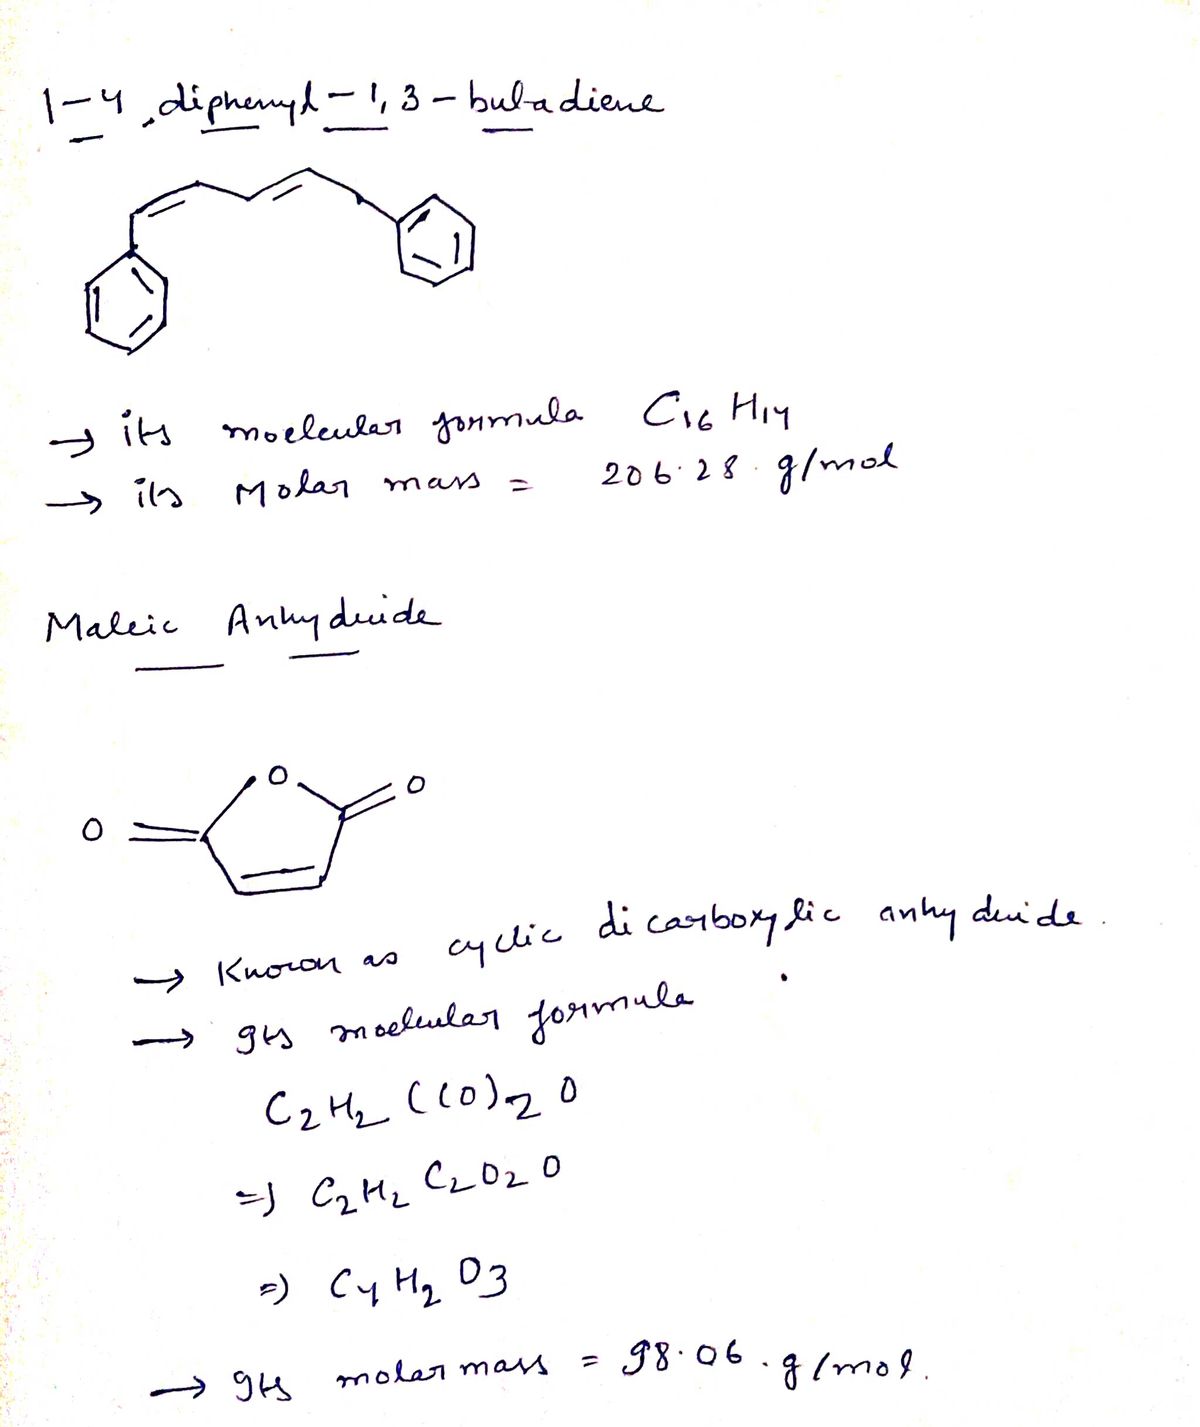 1-4, diphenyl-1,3-butadiene
→ its moelcular formula C16 H14
→ its Molar mass = 206.28. g/mol
Maleic Anhydride
O
O
O
→ Known as cyclic dicarboxylic anhydride.
→ Its moelcular formula
C2H2 (CO)2 O
=) C2H2 C2O2 O
=) C4 H2 O3
→ Its molar mass = 98.06. g/mol.